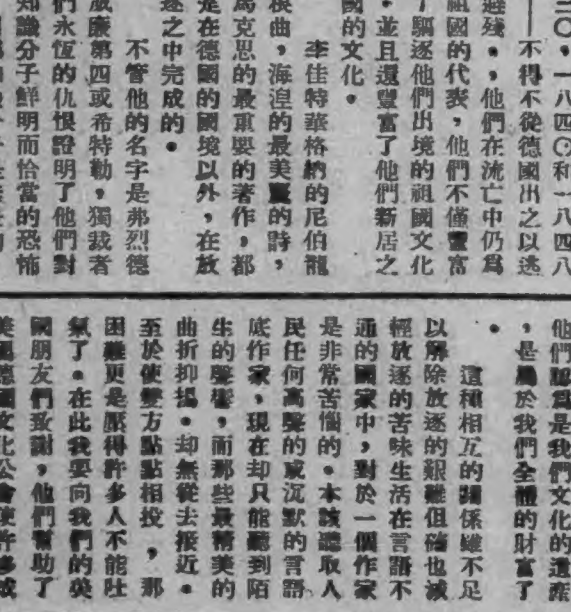 二〇，一八四〇和一八四八
——不得不從德國出之以逃
避殘，，他們在流亡中仍爲
祖國的代表，他們不僅豐富
了驅逐他們出境的祖國文化
，並且還豐富了他們新居之
國的文化。
李佳特華格納的尼伯龍
根曲，海涅的最美麗的詩，
馬克思的最重要的著作，都
是在德國的國境以外，在放
逐之中完成的。
不管他的名字是弗烈德
威廉第四或希特勒，獨裁者
們永恆的仇恨證明了他們對
知識分子鮮明而恰當的恐怖
他們認爲是我們文化的遺產
，是屬於我們全體的財富了
。
這種相互的關係雖不足
以解除放逐的艱難但確也減
輕放逐的苦味生活在言語不
通的國家中，對於一個作家
是非常苦惱的。本該聽取人
民任何高聲的或沉默的言語
底作家，現在却只能聽到陌
生的聲響，而那些最精美的
曲折抑揚。却無從去接近。
至於使雙方點點相投，那
困難更是壓得許多人不能吐
氣了。在此我要向我們的英
國朋友們致謝，他們幫助了
美國德國文化公會使許多或